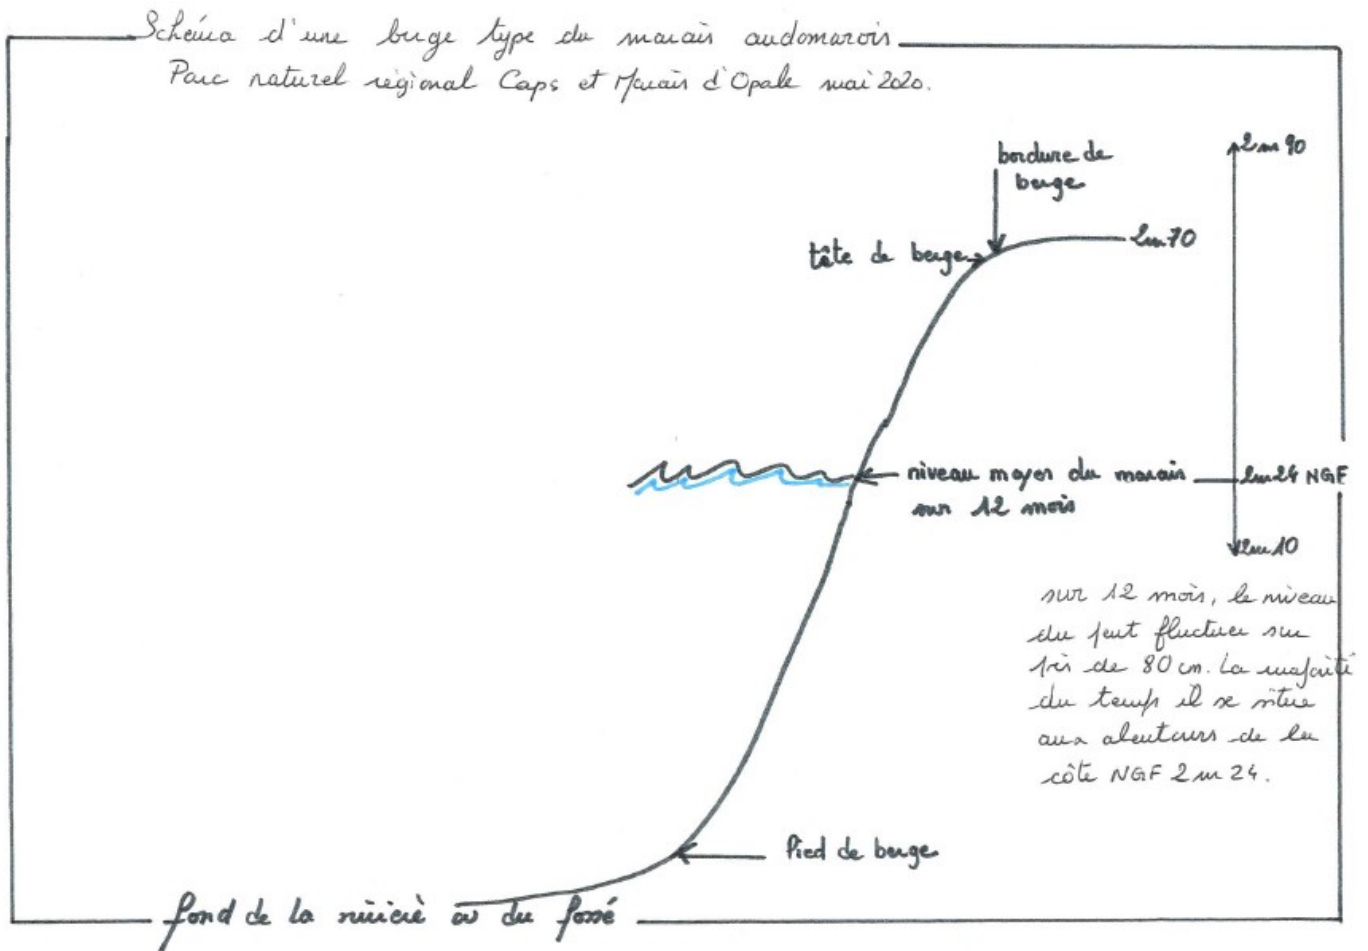 Schéma d'une berge type du marais audomarois
Parc naturel régional Caps et Marais d'Opale mai 2020.
2m90
bordure de
berge
tête de berge
2m70
niveau moyen du marais
sur 12 mois
2m24 NGF
2m10
sur 12 mois, le niveau
du peut fluctuer sur
près de 80 cm. La majorité
du temps il se situe
aux alentours de la
côte NGF 2m24.
Pied de berge
fond de la rivière ou du fossé